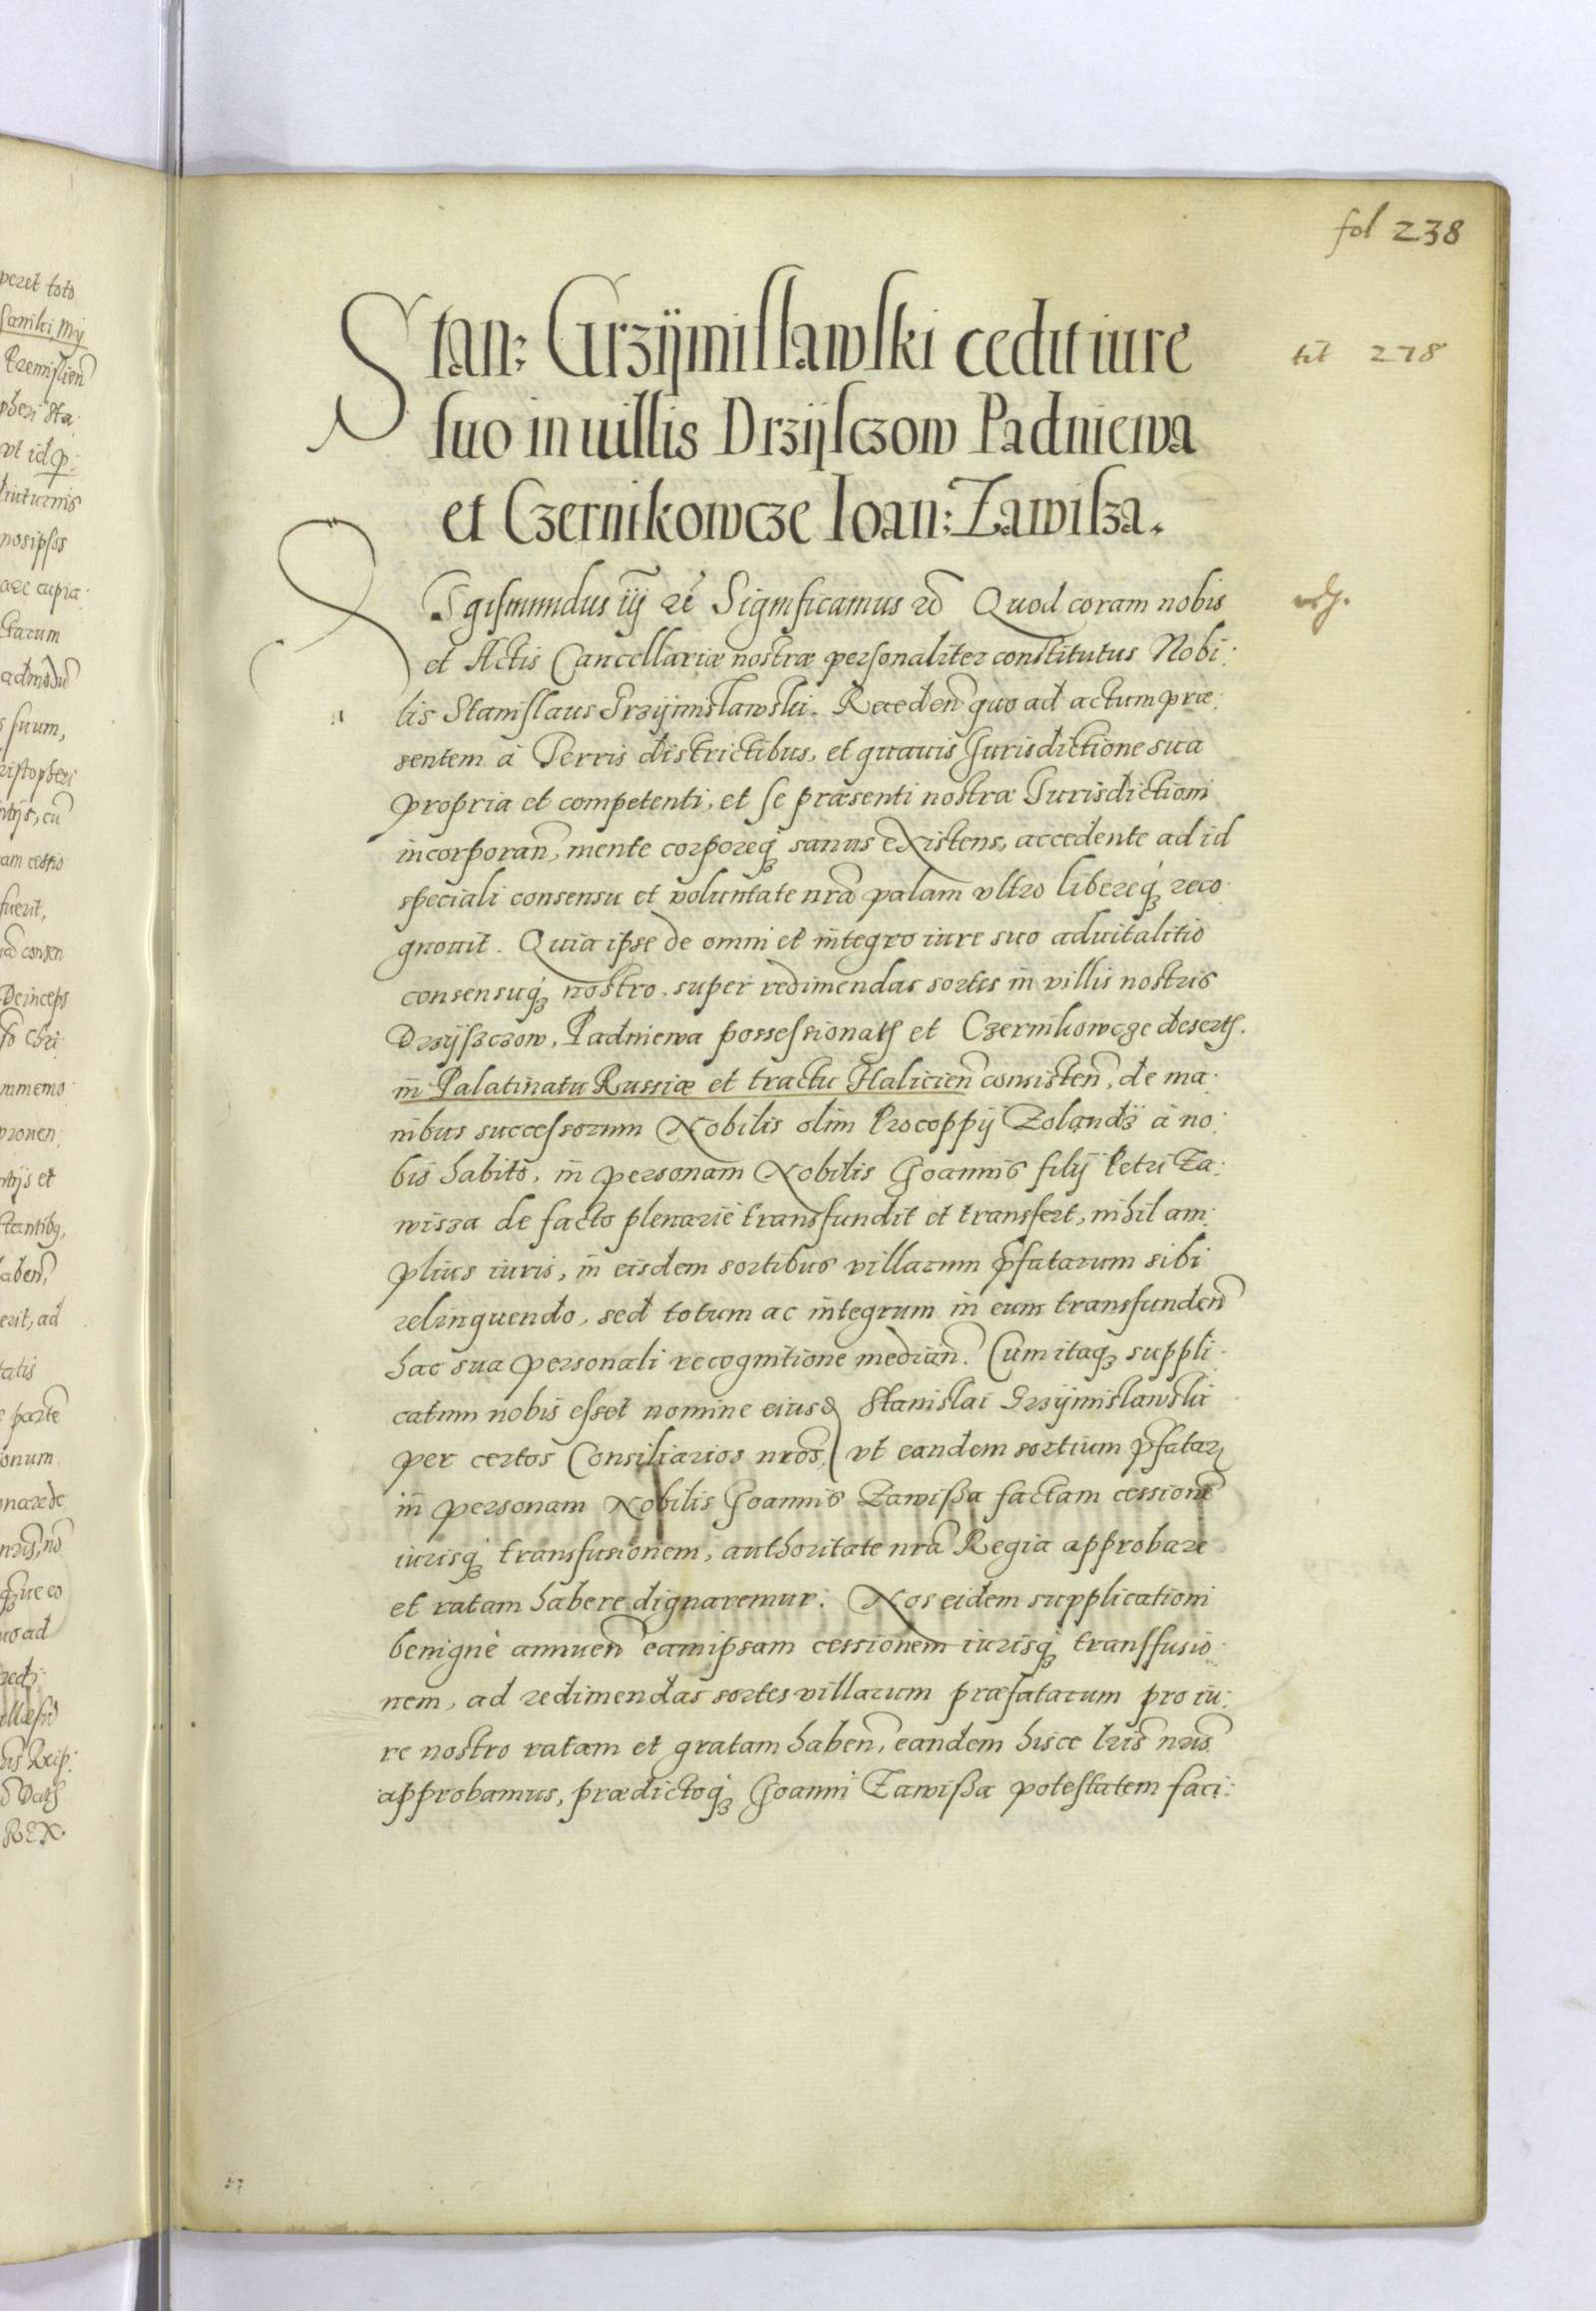 fol 238
Stan: Grzÿmislawski cedit iure
tit 218
suo in uillis Drzÿsczow Padniewa
et Czernikowcze Ioan: Zawisza.
Sgismundus iij rē Significamus rō Quod coram nobis
et Actis Cancellariæ nostræ personaliter constitutus Nobi:
lis Stanislaus Grzÿmislawski. Recedeñ quo ad actum præ:
sentem à Terris districtibus, et quauis Jurisdictione sua
propria et competenti, et se præsenti nostræ Jurisdictioni
incorporañ, mente corporeq; sanus existens, accedente ad id
speciali consensu et voluntate nrã palam vltro libereq; reco:
gnouit. Quia ipse de omni et integro iure suo aduitalitio
consensuq; nostro super redimendas sortes in villis nostris
Drzÿszczow, Padniewa possessionatis et Czernikowcze desertis.
in Palatinatu Russiæ et tractu Halicień consisteñ, de ma:
nibus successorum Nobilis olim Procoppij Zolandz à no:
bis habito, in personam Nobilis Joannis filij Petri Za:
wisza de facto plenariè transfundit et transfert, nihil am:
plius iuris, in eisdem sortibus villarum pfatarum sibi
relinquendo, sed totum ac integrum in eum transfundeñ
hac sua personali recognitione mediañ. Cum itaq; suppli:
catum nobis esset nomine eiusd Stanislai Grzÿmislawski
per certos Consiliarios nros, vt eandem sortium pfatar
in personam Nobilis Joannis Zawißa factam cessionē
iurisq; transfusionem, authoritate nrã Regia approbare
et ratam habere dignaremur. Nos eidem supplicationi
benignè annueñ eamipsam cessionem iurisq; transfusio:
nem, ad redimendas sortes villarum præfatarum pro iu:
re nostro ratam et gratam habeñ, eandem hisce lris nris
approbamus, prædictoq; Joanni Zawißa potestatem faci: